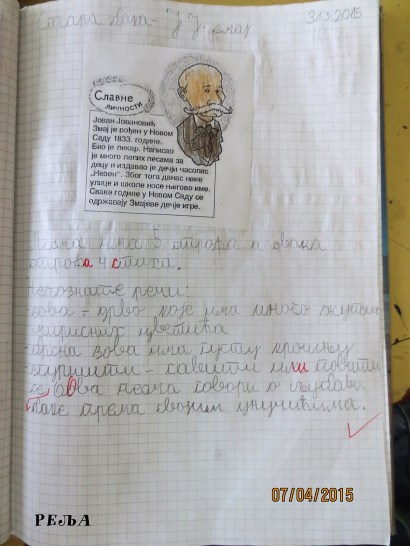 Стара бака - Ј. Ј. Змај 31.3.2015
Славне
личности
Јован Јовановић
Змај је рођен у Новом
Саду 1833. године.
Био је лекар. Написао
је много лепих песама за
децу и издавао је дечји часопис
„Невен“. Због тога данас неке
улице и школе носе његово име.
Сваке године у Новом Саду се
одржавају Змајеве дечје игре.
Песма има 5 строфа а свака
строфа 4 стиха.
Непознате речи:
зова - дрво које има много жутих
мирисних цветића
зова има густу крошњу
- савити или повити
се Ова песма говори о љубави
баке према својим унучићима.
07/04/2015
РЕЉА